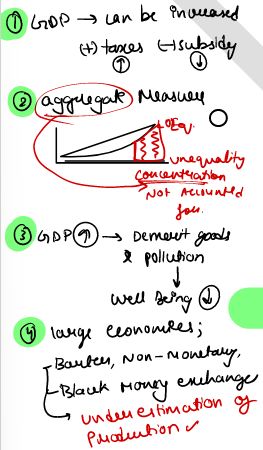 ① GDP → can be increased
(+) taxes (-) subsidy
↑ ↓
② aggregate Measure
Eq.
unequality
concentration
Not accounted
for.
③ GDP ↑ → Demerit goods
& pollution
↓
well Being ↓
④ large economies;
- Barter, Non-Monetary,
- Black Money exchange
→ underestimation of
Production ✓